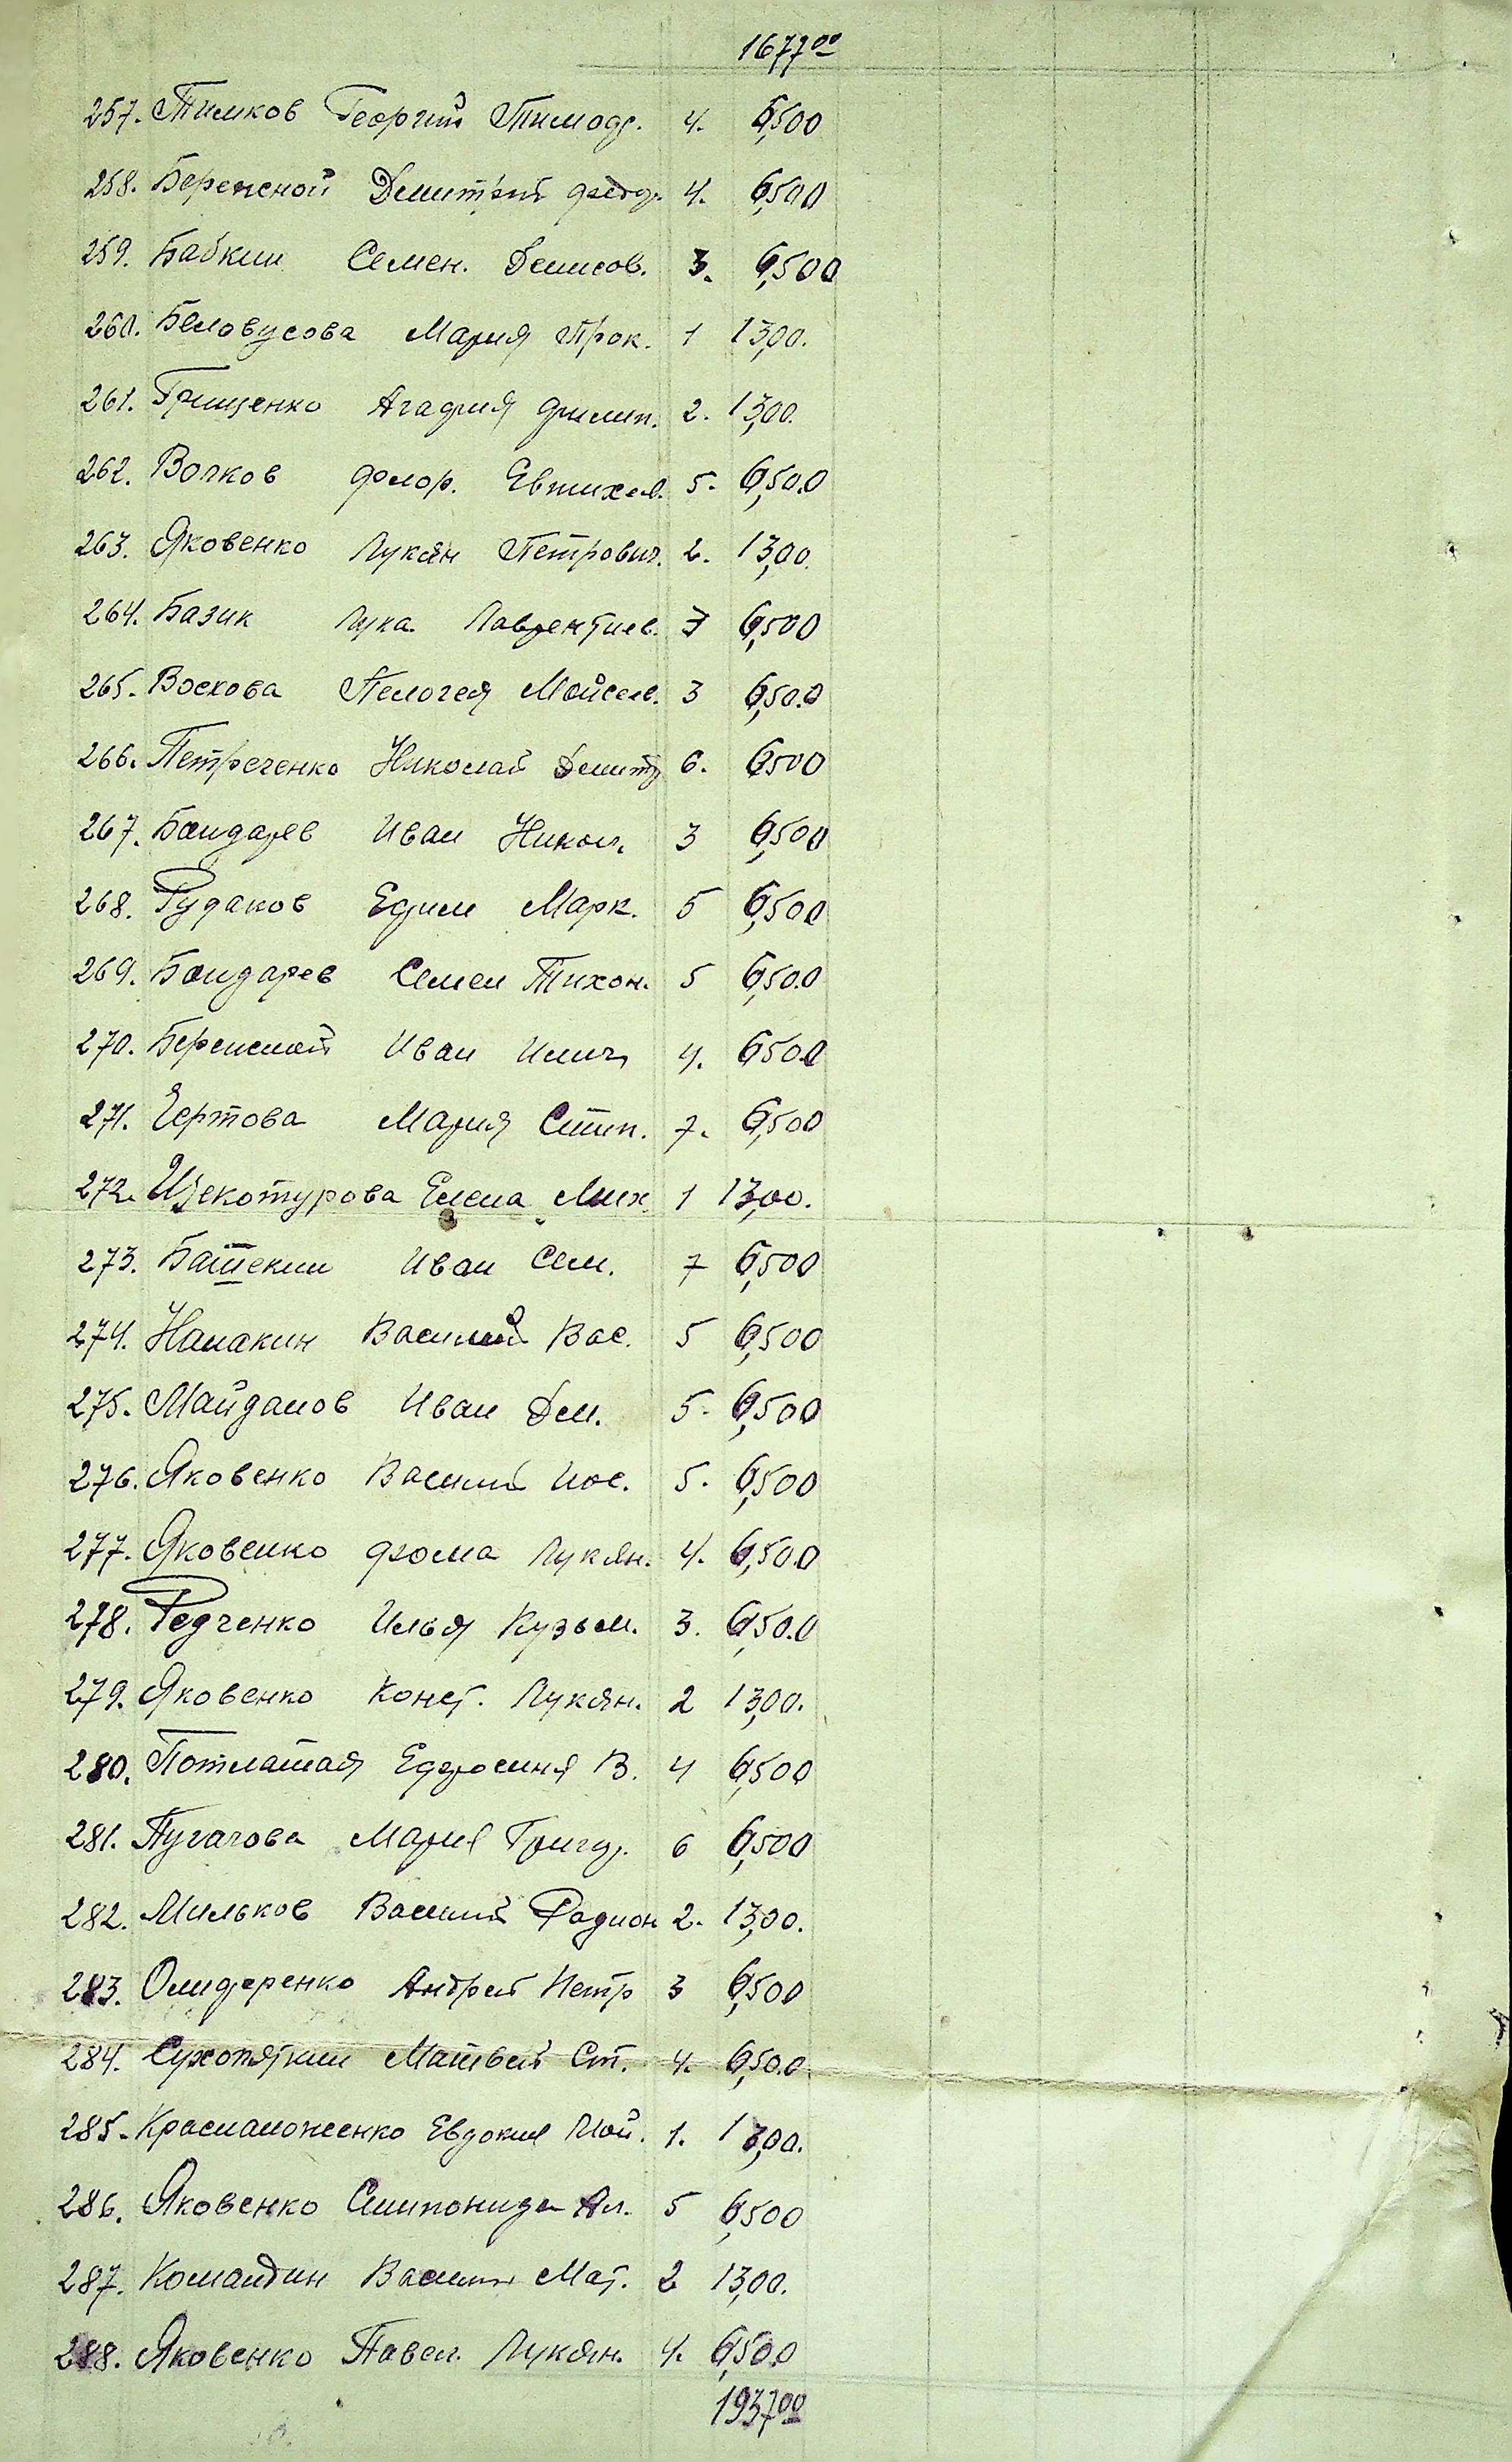 1677 00
257. Тимков Георгий Тимоф. 4. 6,500
258. Бережной Дмитрий Федор. 4. 6,500
259. Бабкин Семен. Денисов. 3. 6,500
260. Беловусова Мария Прок. 1 13,00.
261. Грищенко Агафия Филип. 2. 13,00.
262. Волков Флор. Евтихев. 5. 6,500
263. Яковенко Лукян Петрович. 2. 13,00.
264. Базик Лука Лаврентиев. 3 6,500
265. Воскова Пелогея Мойсее. 3 6,500
266. Петреченко Николай Дмитр 6. 6500
267. Бондарев Иван Никол. 3 6,500
268. Рудаков Ефим Марк. 5 6,500
269. Бондарев Семен Тихон. 5 6,500
270. Бережной Иван Илич 4. 6500
271. Чертова Мария Степ. 7. 6,500
272. Щекотурова Елена Мих. 1 13,00.
273. Батекин Иван Сем. 7 6,500
274. Налакин Василий Вас. 5 6,500
275. Майданов Иван Дем. 5. 6,500
276. Яковенко Василий Иос. 5. 6,500
277. Яковенко Фома Лукян. 4. 6,500
278. Редченко Илья Кузьм. 3. 6,500
279. Яковенко Конст. Лукян. 2 13,00.
280. Потлатая Ефросиня В. 4 6,500
281. Пугачова Мария Григор. 6 6,500
282. Мильков Василий Радион 2. 13,00.
283. Олиференко Андрей Петр 3 6,500
284. Сухопяткин Матвей Ст. 4. 6,500
285. Краснаноженко Евдокия Мой. 1. 13,00.
286. Яковенко Ал. 5 6,500
287. Командин Василий Мат. 2 13,00.
288. Яковенко Павел. Лукян. 4. 6,500
1937 00